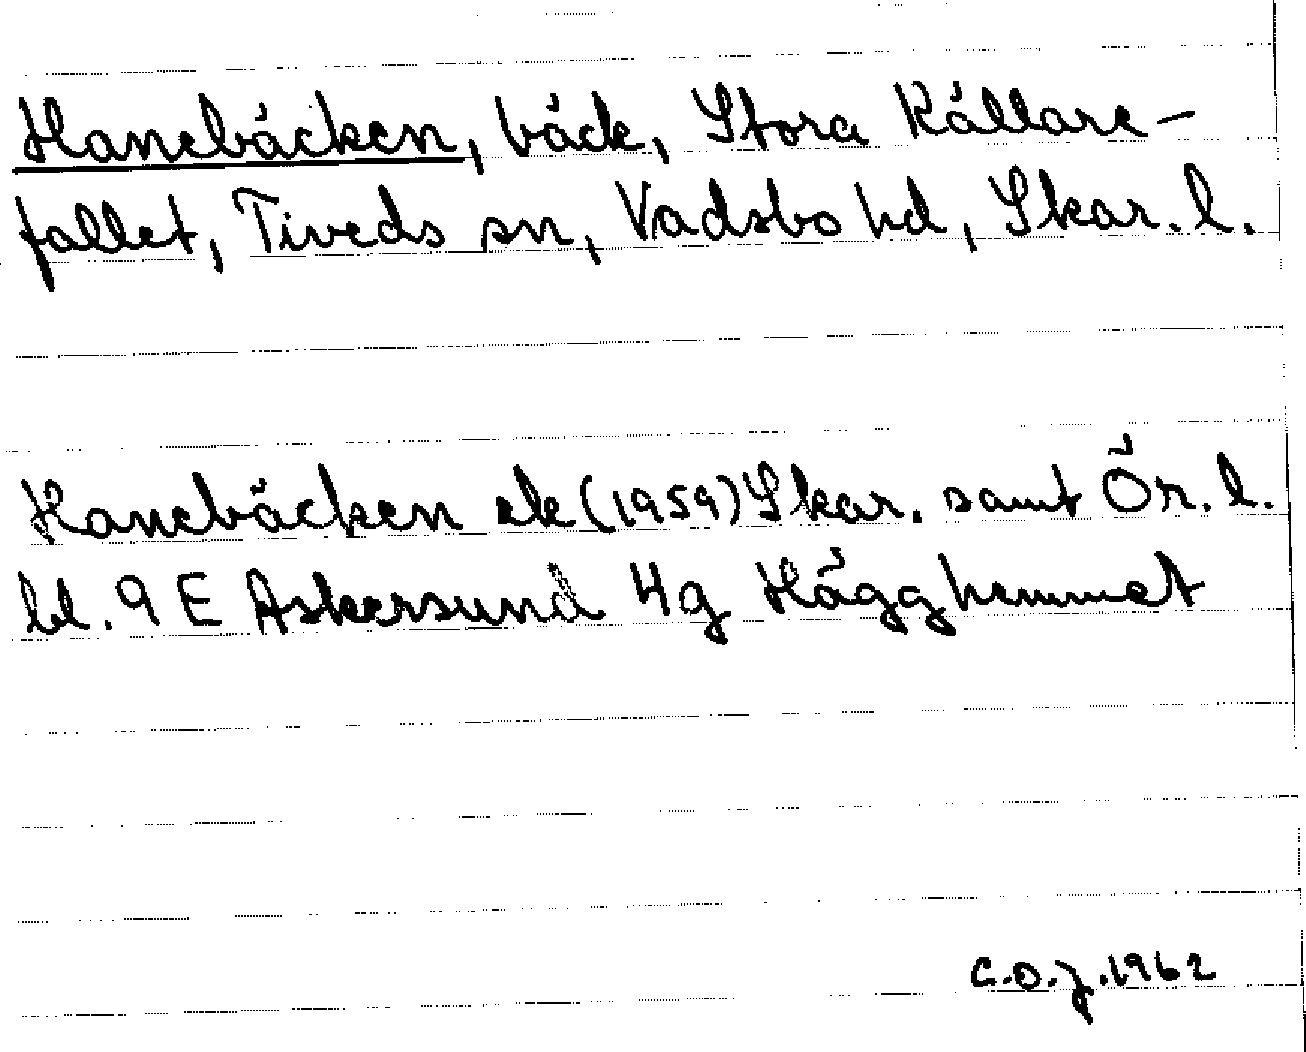 Hanebäcken, bäck, Stora Källare-
fallet, Tiveds sn, Vadsbo hd, Skar. l.
Hanebäcken ek (1959) Skar. samt Ör. l.
bl. 9 E Askersund 4g Hägghemmet
C.O.J. 1962